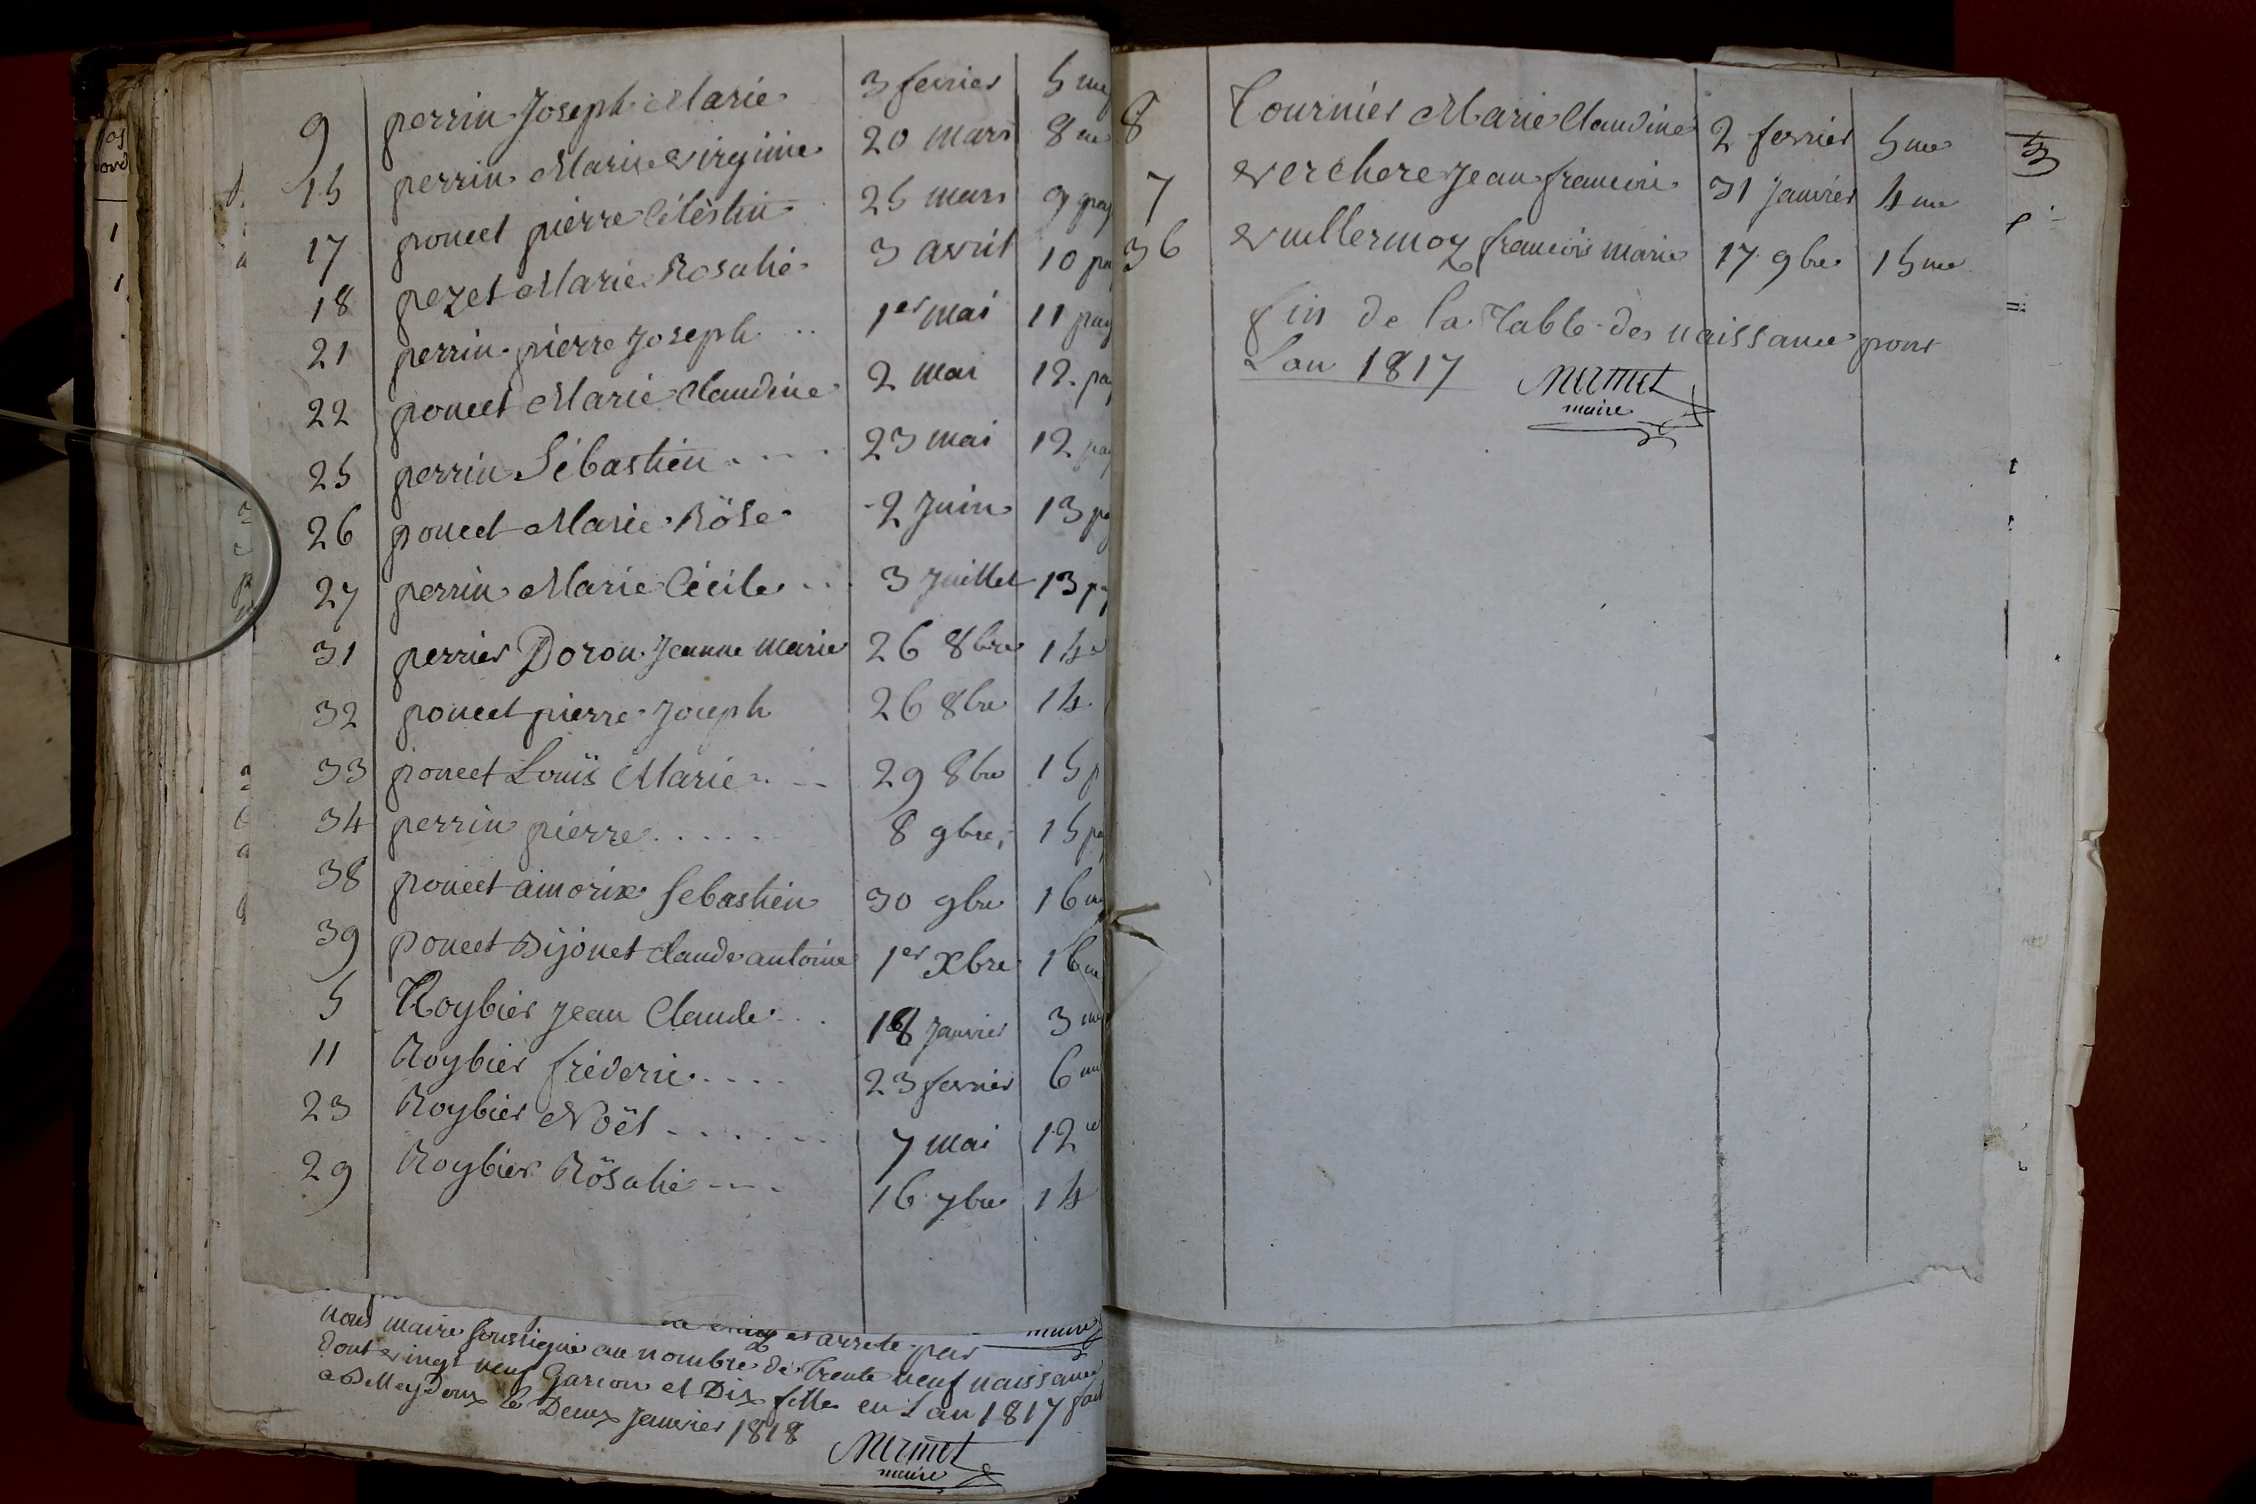 9 perrin Joseph Marie 3 fevrier 5 me
15 perrin Marie Virginie 20 mars 8 me
17 poncet pierre Célèstin 25 mars 9 pag
18 pezet Marie Rosalie 3 avril 10 pa
21 perrin pierre Joseph .. 1er mai 11 pag
22 poncet Marie Claudine 2 mai 12 pa
25 perrin Sébastien .... 23 mai 12 pag
26 poncet Marie Röse 2 Juin 13 pa
27 perrin Marie Cécile ... 3 Juillet 13 p
31 perrier Doron Jeanne marie 26 8bre 14
32 poncet pierre Joseph 26 8bre 14
33 poncet Louïs Marie ... 29 8bre 15 p
34 perrin pierre ...... 8 9bre 15 pa
38 poncet aimorix Sebastien 30 9bre 16 me
39 poncet Dijonet claude antoine 1er Xbre 16 me
5 Roybier Jean Claude .. 18 Janvier 3 me
11 Roybier fréderic .... 23 fevrier 6 me
23 Roybier Noël ....... 7 mai 12
29 Roybier Rösalie .... 16 7bre 14
arrete par
nous maire soussigné au nombre de trente neuf naissance
dont vingt neuf Garcon et Dix fille en Lan 1817 fait
a Belleydoux le Deux Janvier 1818
Mermet
maire
8 Tournier Marie Claudine 2 fevrier 5 me
7 Verchere Jean francois 31 Janvier 4 me
36 Vuillermoz francois marie 17 9bre 15 me
fin de la Table des naissance pour
Lan 1817
Mermet
maire